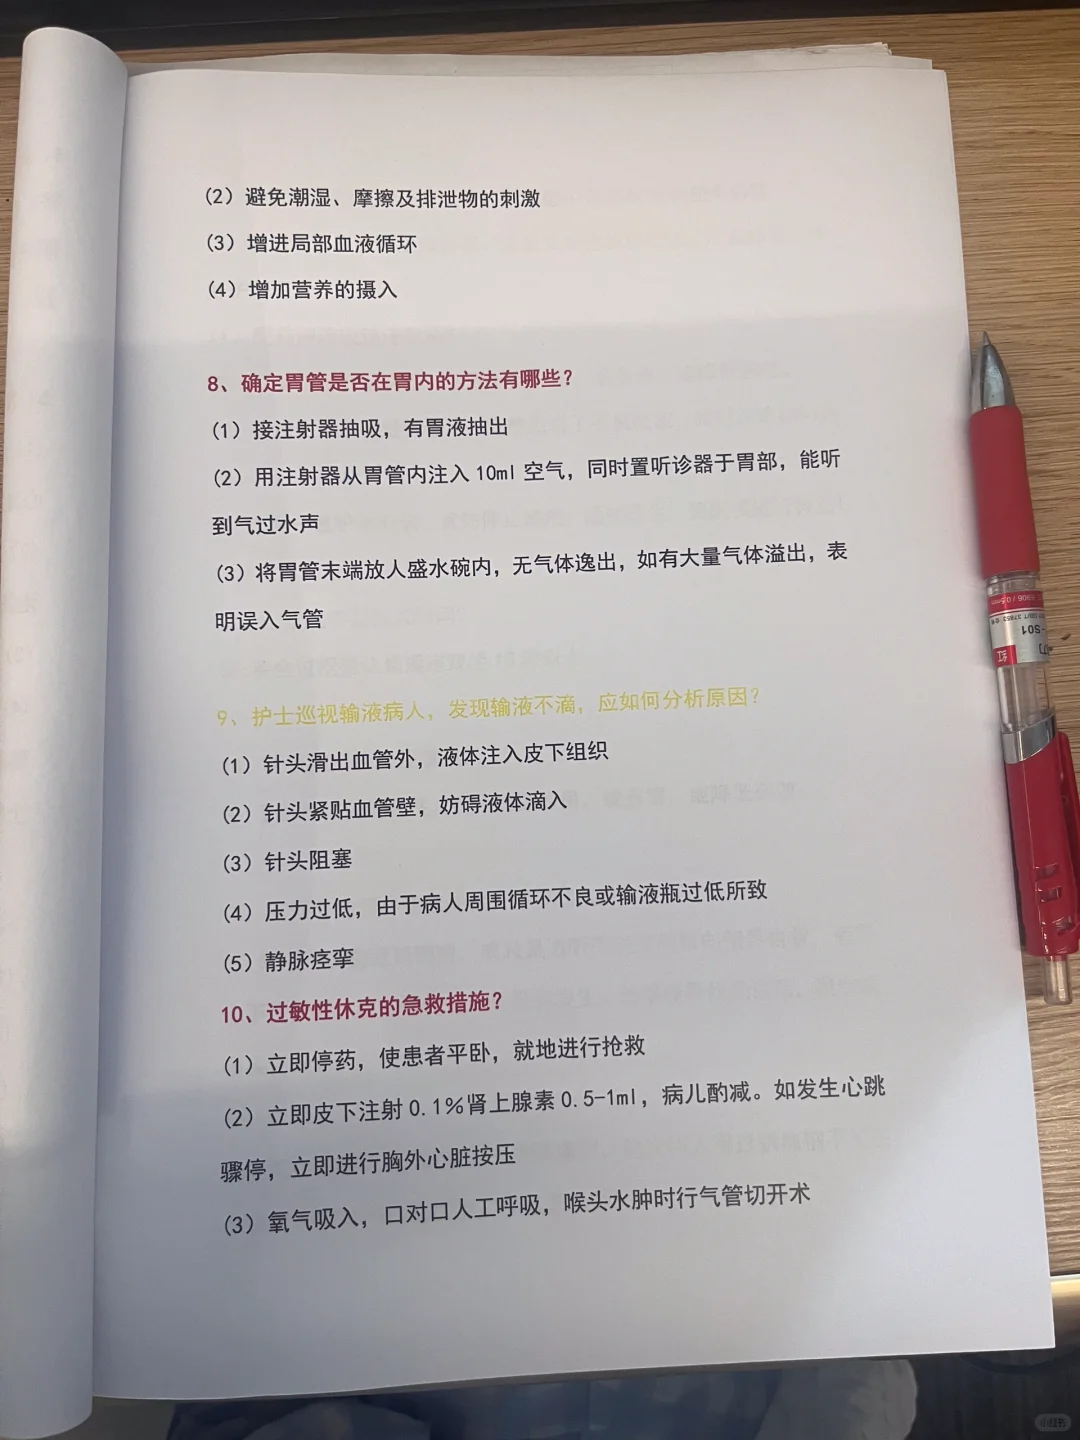 (2) 避免潮湿、摩擦及排泄物的刺激
(3) 增进局部血液循环
(4) 增加营养的摄入
8、确定胃管是否在胃内的方法有哪些?
(1) 接注射器抽吸，有胃液抽出
(2) 用注射器从胃管内注入 10ml 空气，同时置听诊器于胃部，能听
到气过水声
(3) 将胃管末端放人盛水碗内，无气体逸出，如有大量气体溢出，表
明误入气管
9、护士巡视输液病人，发现输液不滴，应如何分析原因?
(1) 针头滑出血管外，液体注入皮下组织
(2) 针头紧贴血管壁，妨碍液体滴入
(3) 针头阻塞
(4) 压力过低，由于病人周围循环不良或输液瓶过低所致
(5) 静脉痉挛
10、过敏性休克的急救措施?
(1) 立即停药，使患者平卧，就地进行抢救
(2) 立即皮下注射 0.1%肾上腺素 0.5-1ml，病儿酌减。如发生心跳
骤停，立即进行胸外心脏按压
(3) 氧气吸入，口对口人工呼吸，喉头水肿时行气管切开术
S01
红
小红书